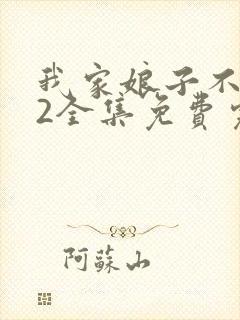 我家娘子不
2全集免费
阿蘇山